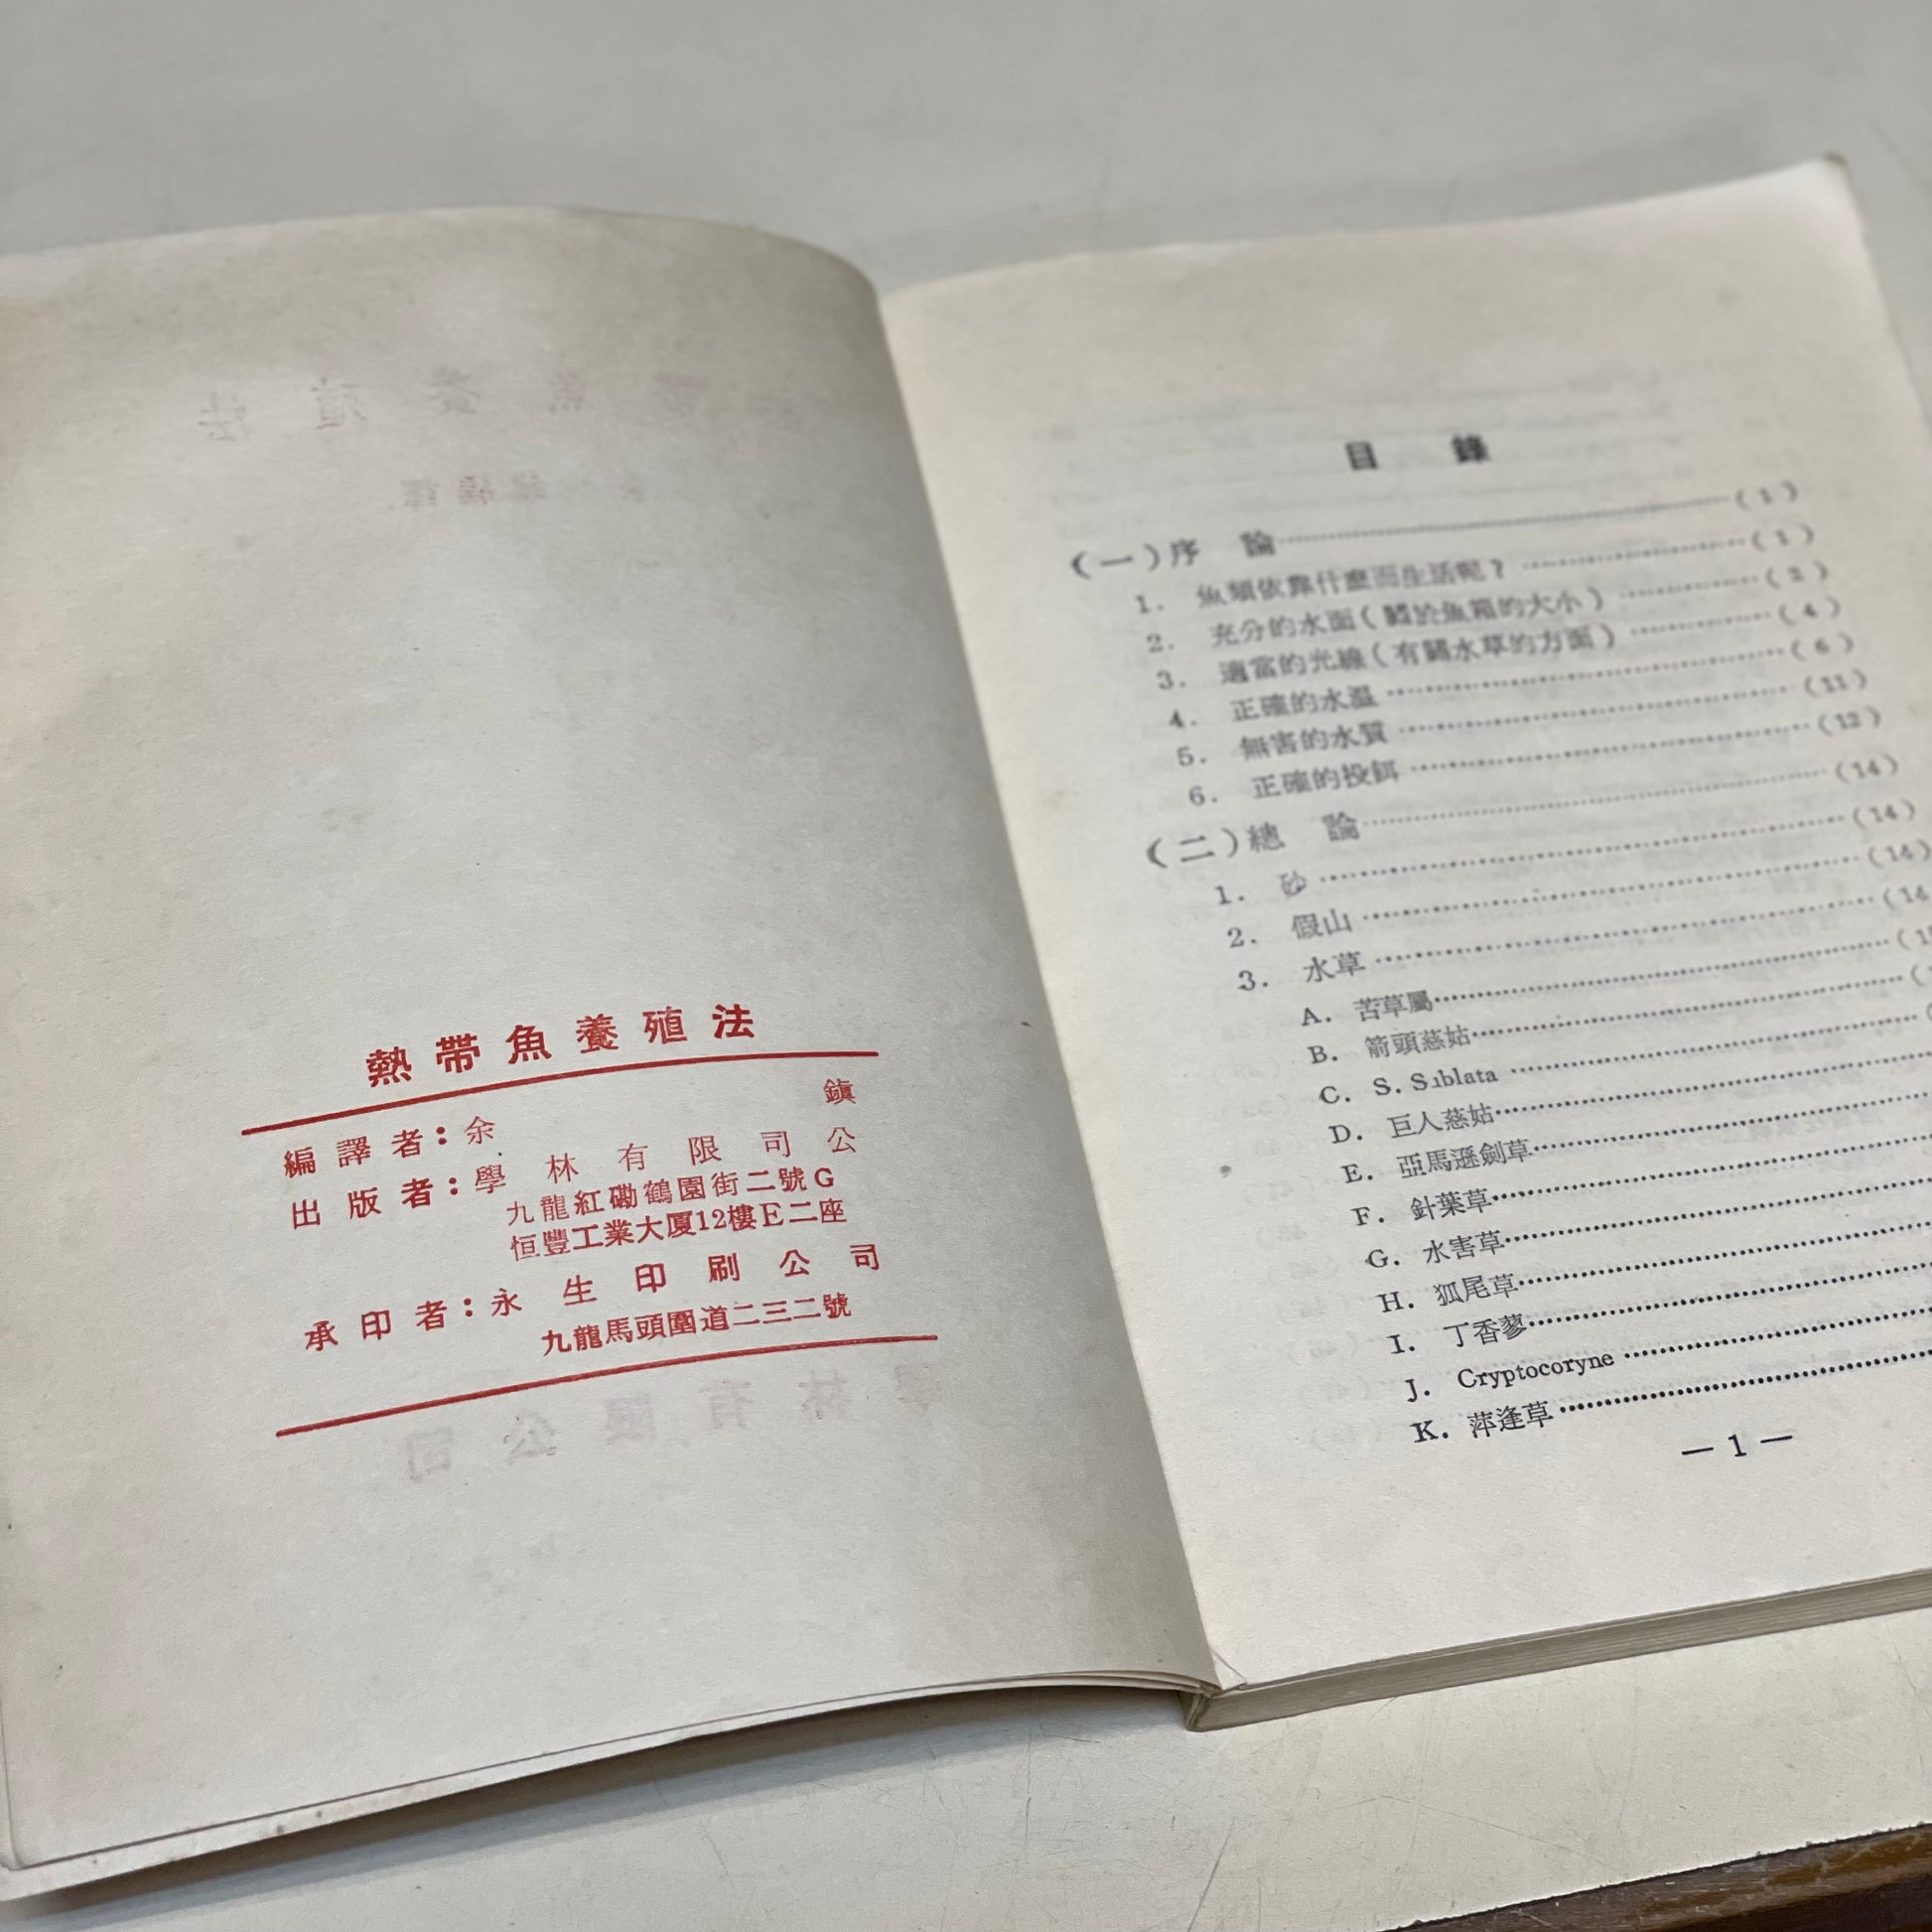 熱帶魚養殖法
編譯者：余 鎮
出版者：學林有限司公
九龍紅磡鶴園街二號G
恒豐工業大厦12樓E二座
承印者：永生印刷公司
九龍馬頭圍道二三二號
目 錄
（一）序 論……（1）
1. 魚類依靠什麽而生活呢？……（1）
2. 充分的水面（關於魚箱的大小）……（2）
3. 適當的光線（有關水草的方面）……（4）
4. 正確的水溫……（6）
5. 無害的水質……（11）
6. 正確的投餌……（12）
（二）總 論……（14）
1. 砂……（14）
2. 假山……（14）
3. 水草……（14
A. 苦草屬……
B. 箭頭慈姑……
C. S. Sublata……
D. 巨人慈姑……
E. 亞馬遜劍草……
F. 針葉草……
G. 水害草……
H. 狐尾草……
I. 丁香蓼……
J. Cryptocoryne……
K. 萍逢草……
— 1 —